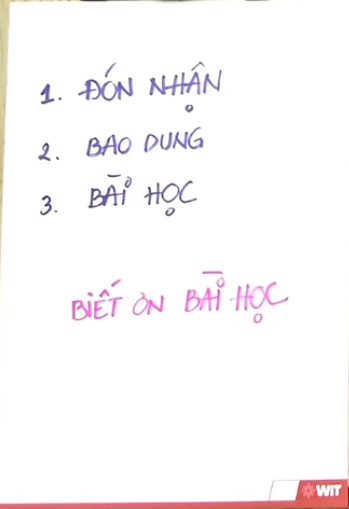 1. ĐÓN NHẬN
2. BAO DUNG
3. BÀI HỌC
BIẾT ƠN BÀI HỌC
WIT